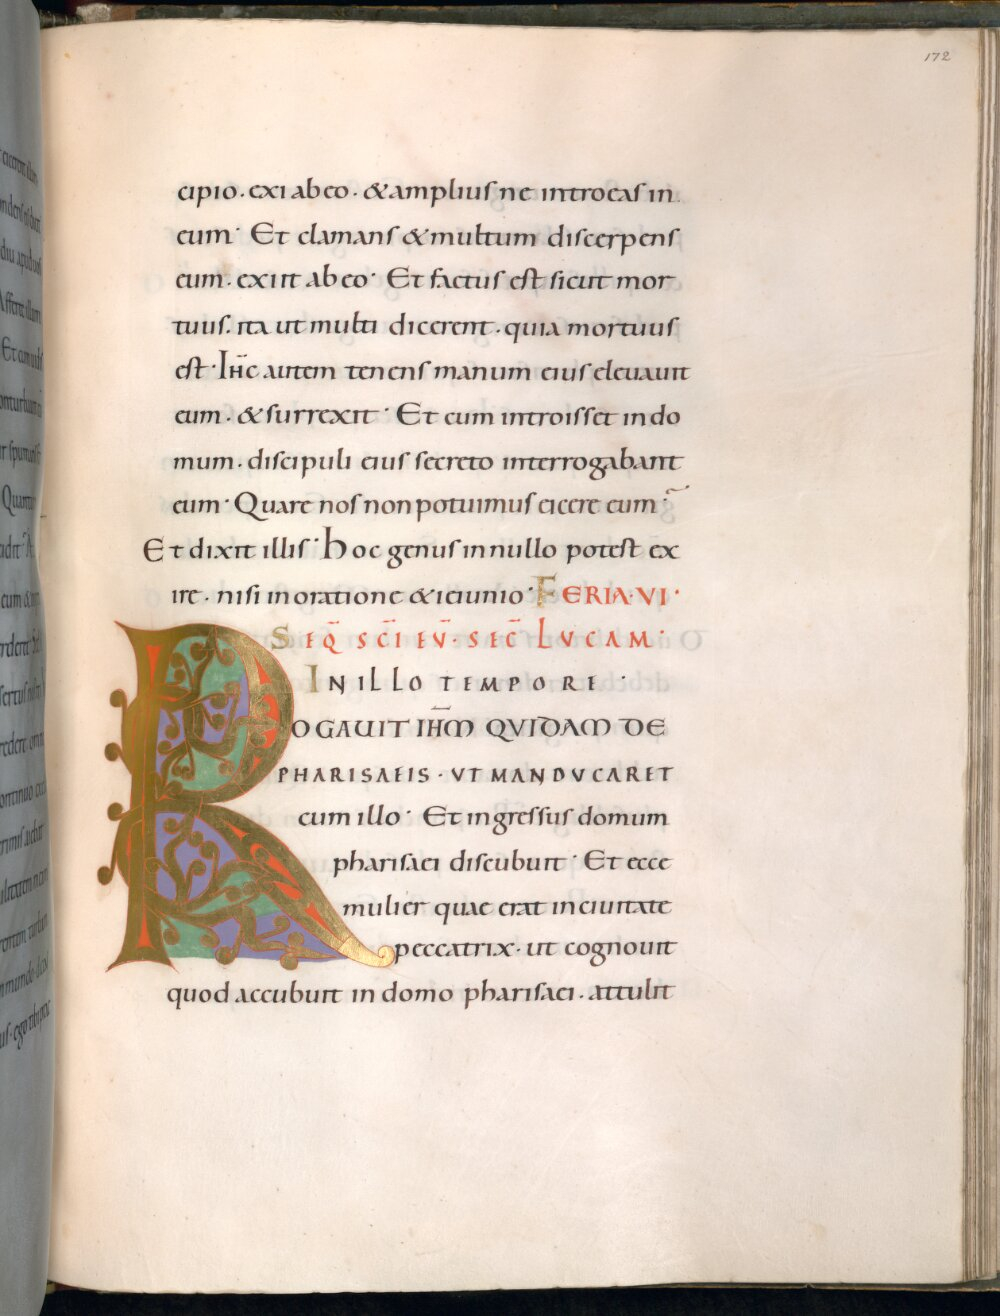 172
cipio. exi ab eo. & amplius ne introeas in
eum. Et clamans & multum discerpens
eum. exiit ab eo. Et factus est sicut mor
tuus. ita ut multi dicerent. quia mortuus
est. Ihc̄ autem tenens manum eius eleuauit
eum. & surrexit. Et cum introisset in do
mum. discipuli eius secreto interrogabant
eum. Quare nos non potuimus eicere eum.
Et dixit illis. hoc genus in nullo potest ex
ire. nisi in oratione & ieiunio. FERIA. VI.
SEQ̄ SC̄I EV̄. SEC̄ LVCAM.
IN ILLO TEMPORE.
ROGAUIT IHM̄ QVIDAM DE
PHARISAEIS. VT MANDVCARET
cum illo. Et ingressus domum
pharisaei discubuit. Et ecce
mulier quae erat in ciuitate
peccatrix. ut cognouit
quod accubuit in domo pharisaei. attulit